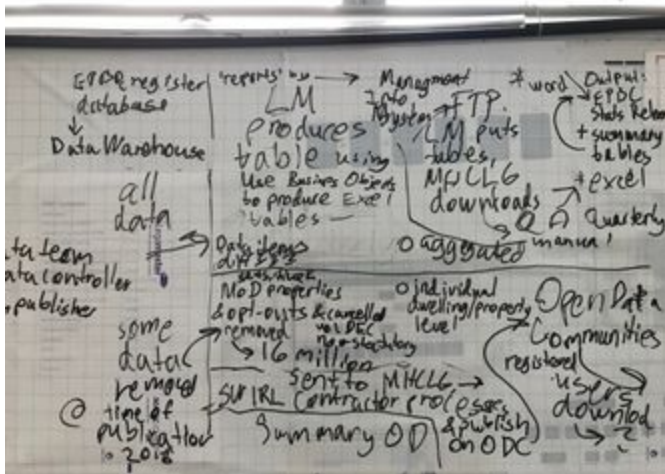 EPDR register
database
Data Warehouse
all
data
data team
data controller
publisher
some
data
removed
@ time of
publication
2018
'reports'
LM
produces
table using
Use Business Objects
to produce Excel
tables
Data items
MoD properties
& opt-outs & cancelled
removed
16 million
sent to MHCLG
Contractor processes
& publish
on ODC
Summary OD
Managment
Info
System
FTP.
LM puts
tables,
MHCLG
downloads
QA
manual
aggregated
individual
dwelling/property
level
* word
Output:
EPDC
Stats Release
+ summary
tables
* excel
Quarterly
Open Data
Communities
registered
users
download